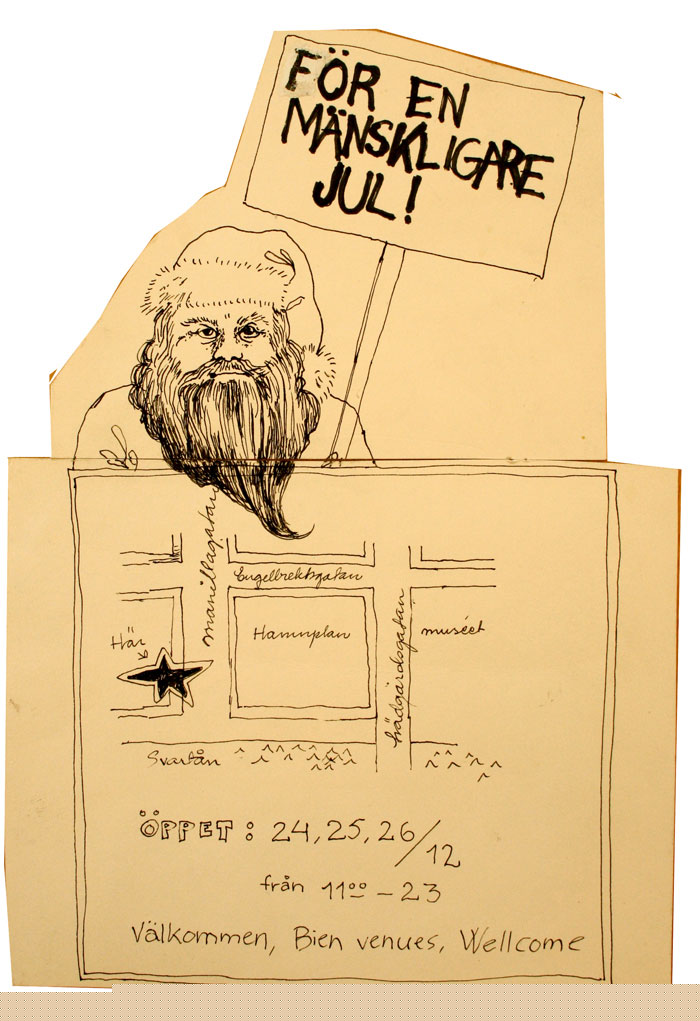 FÖR EN
MÄNSKLIGARE
JUL!
manillagatan
Engelbrektsgatan
Hamnplan
trädgårdsgatan
muséet
Här
Svartån
ÖPPET : 24, 25, 26/12
från 11⁰⁰ – 23
Välkommen, Bien venues, Wellcome